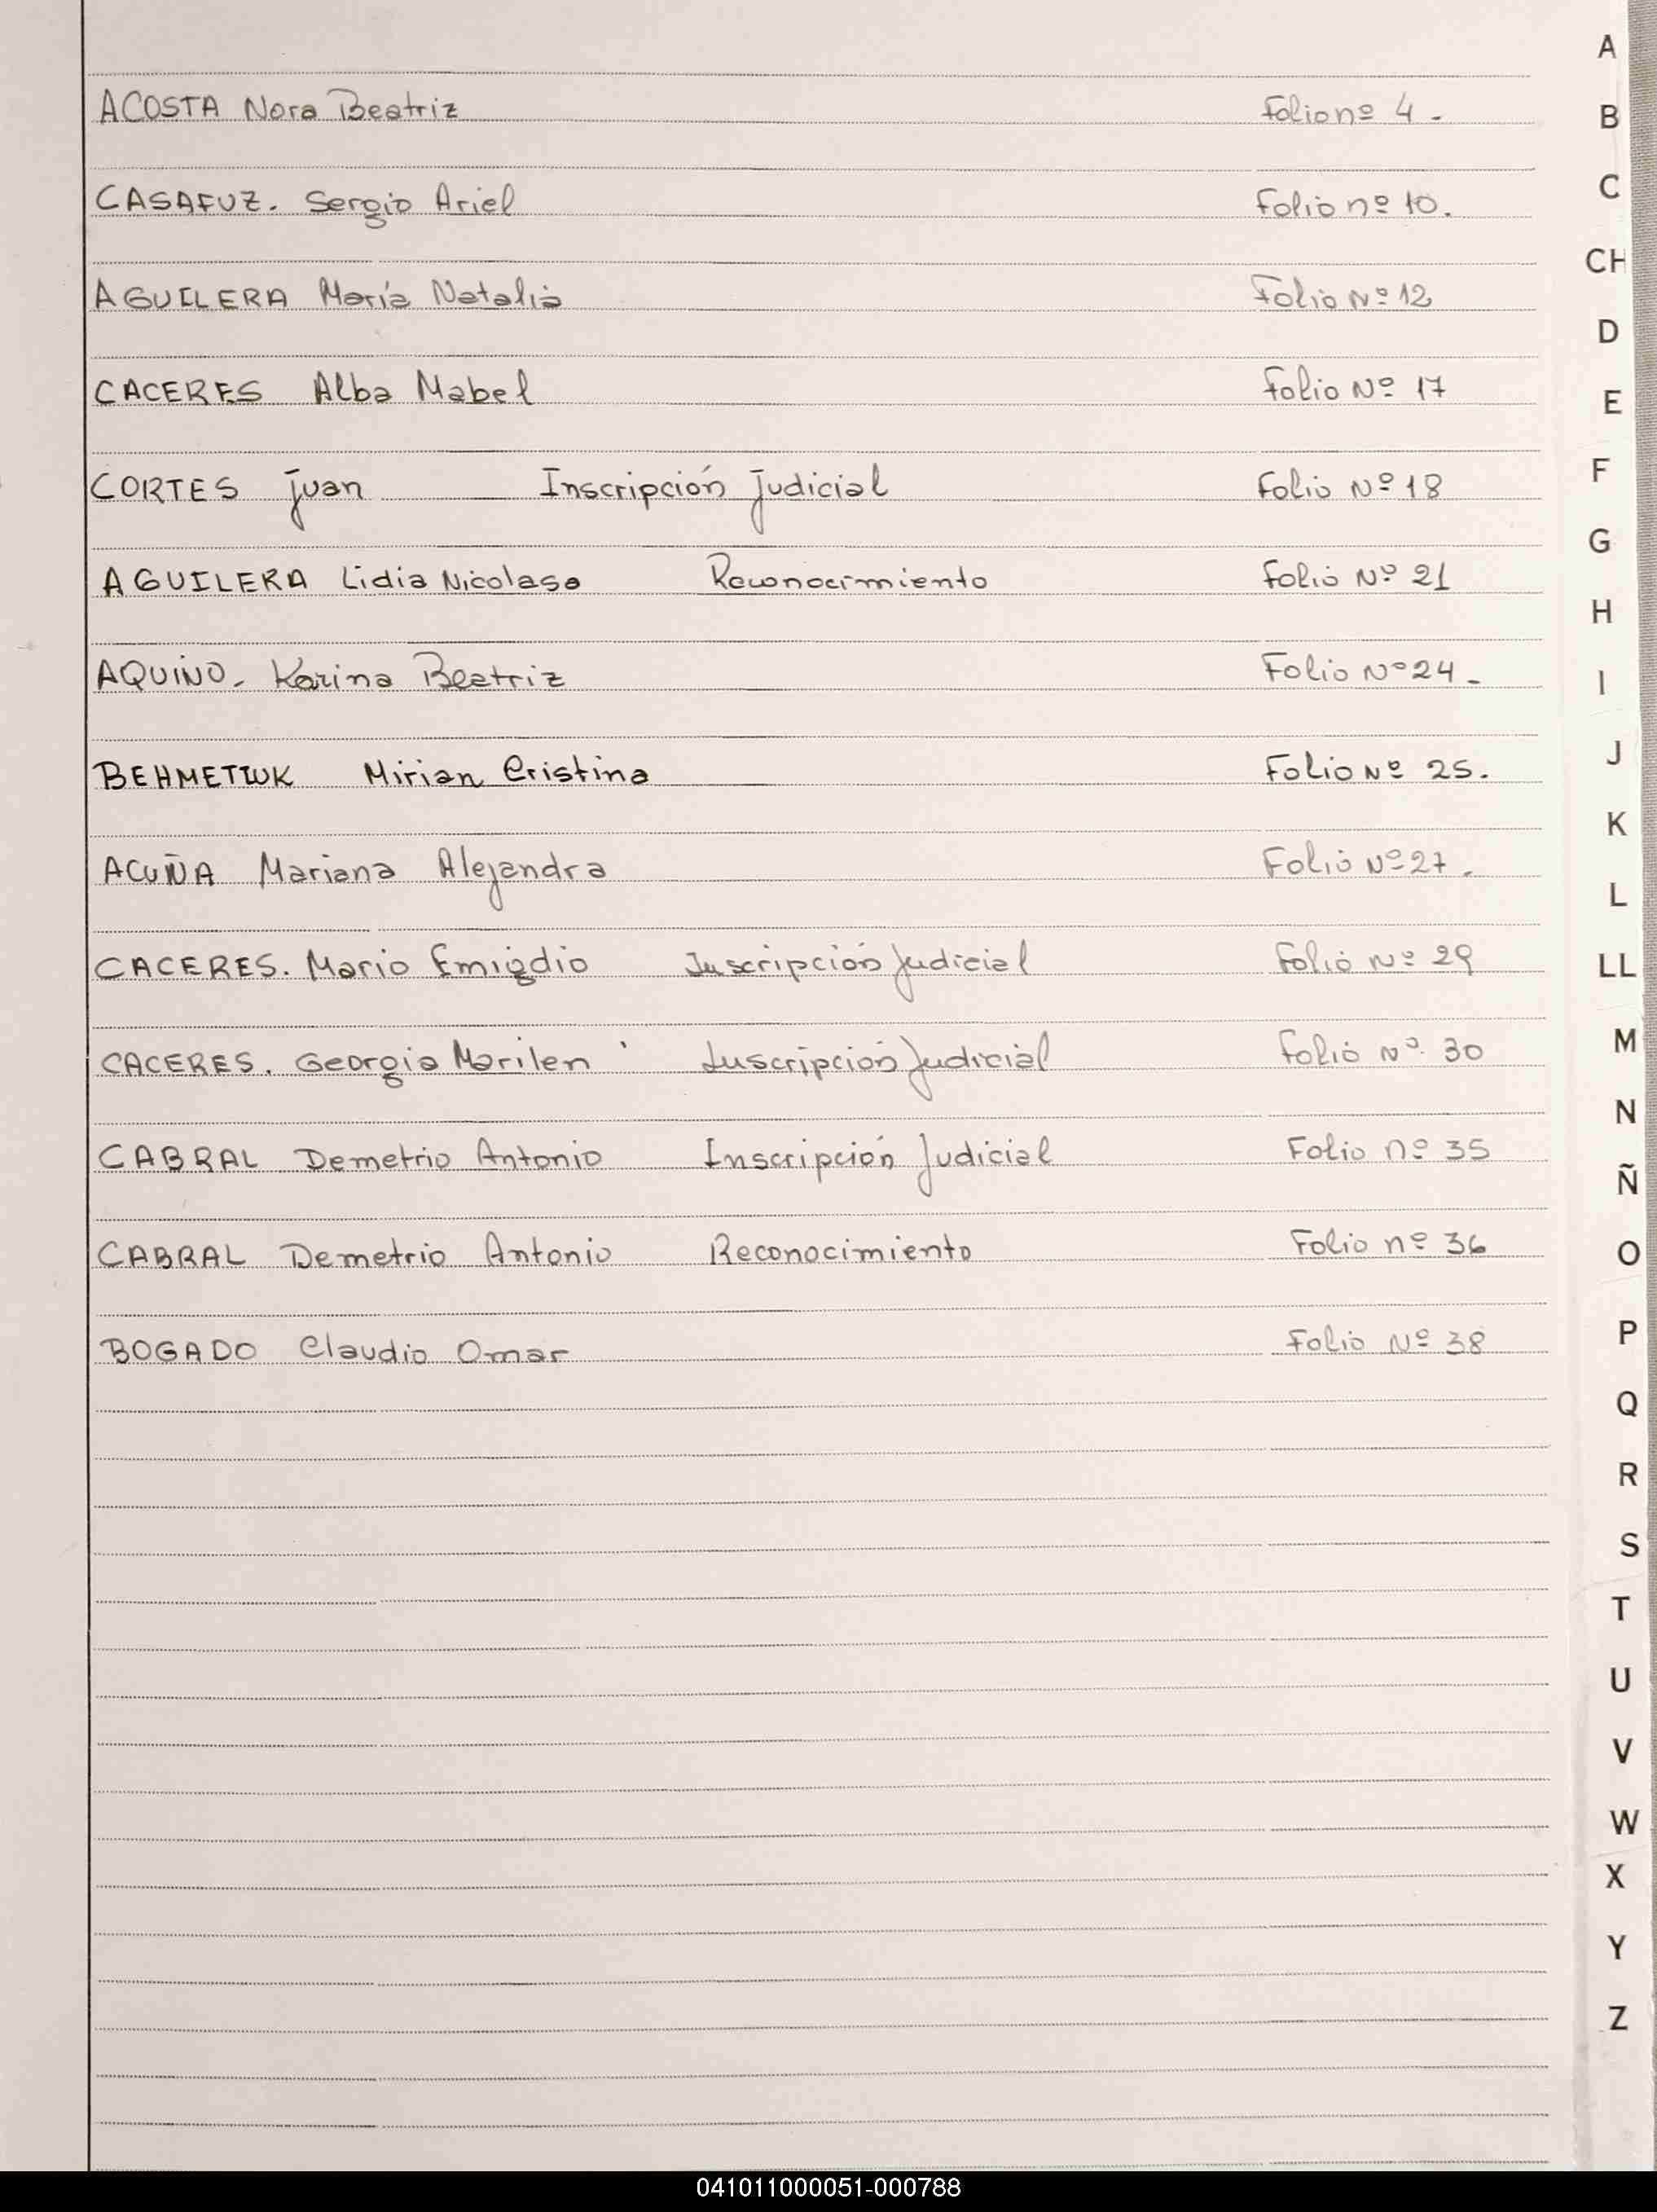 ACOSTA Nora Beatriz Folio nº 4.-
CASAFUZ. Sergio Ariel Folio nº 10.
AGUILERA María Natalia Folio Nº 12
CACERES Alba Mabel Folio Nº 17
CORTES Juan Inscripción Judicial Folio Nº 18
AGUILERA Lidia Nicolasa Reconocimiento Folio Nº 21
AQUINO - Karina Beatriz Folio Nº 24 -
BEHMETIUK Mirian Cristina Folio Nº 25.
ACUÑA Mariana Alejandra Folio Nº 27.
CACERES. Mario Emigdio Inscripción Judicial Folio Nº 29
CACERES. Georgia Marilen Inscripción Judicial Folio Nº 30
CABRAL Demetrio Antonio Inscripción Judicial Folio nº 35
CABRAL Demetrio Antonio Reconocimiento Folio nº 36
BOGADO Claudio Omar Folio Nº 38
A
B
C
CH
D
E
F
G
H
I
J
K
L
LL
M
N
Ñ
O
P
Q
R
S
T
U
V
W
X
Y
Z
041011000051-000788